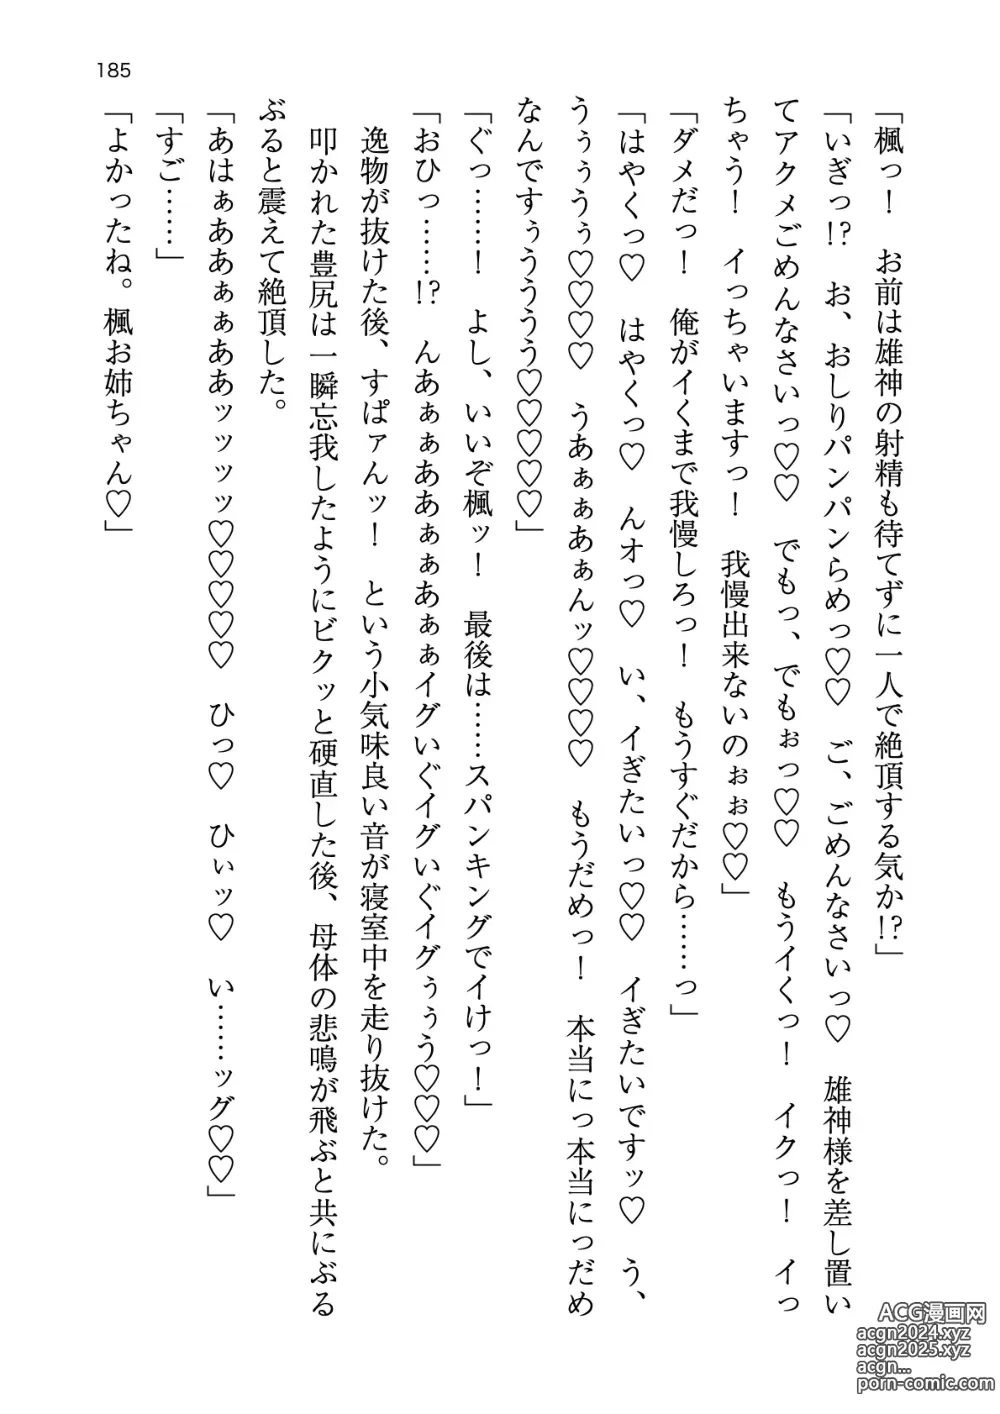 185
「楓っ！　お前は雄神の射精も待てずに一人で絶頂する気か!?」
「いぎっ!?　お、おしりパンパンらめっ♡♡　ご、ごめんなさいっ♡　雄神様を差し置い
てアクメごめんなさいっ♡♡　でもっ、でもぉっ♡♡　もうイくっ！　イクっ！　イっ
ちゃう！　イっちゃいますっ！　我慢出来ないのぉぉ♡♡」
「ダメだっ！　俺がイくまで我慢しろっ！　もうすぐだから……っ」
「はやくっ♡　はやくっ♡　んオっ♡　い、イぎたいっ♡♡　イぎたいですッ♡　う、
うぅぅうぅ♡♡♡♡　うあぁぁあぁんッ♡♡♡♡　もうだめっ！　本当にっ本当にっだめ
なんですぅぅううう♡♡♡♡♡」
「ぐっ……！　よし、いいぞ楓ッ！　最後は……スパンキングでイけっ！」
「おひっ……!?　んあぁぁああぁぁあぁぁイグいぐイグいぐイグぅぅう♡♡♡」
逸物が抜けた後、すぱァんッ！　という小気味良い音が寝室中を走り抜けた。
叩かれた豊尻は一瞬忘我したようにビクッと硬直した後、母体の悲鳴が飛ぶと共にぶる
ぶると震えて絶頂した。
「あはぁああぁぁああッッッッ♡♡♡♡♡　ひっ♡　ひぃッ♡　い……ッグ♡♡」
「すご……」
「よかったね。楓お姉ちゃん♡」
ACG漫画网
acgn2024.xyz
acgn2025.xyz
acgn...
porn-comic.com